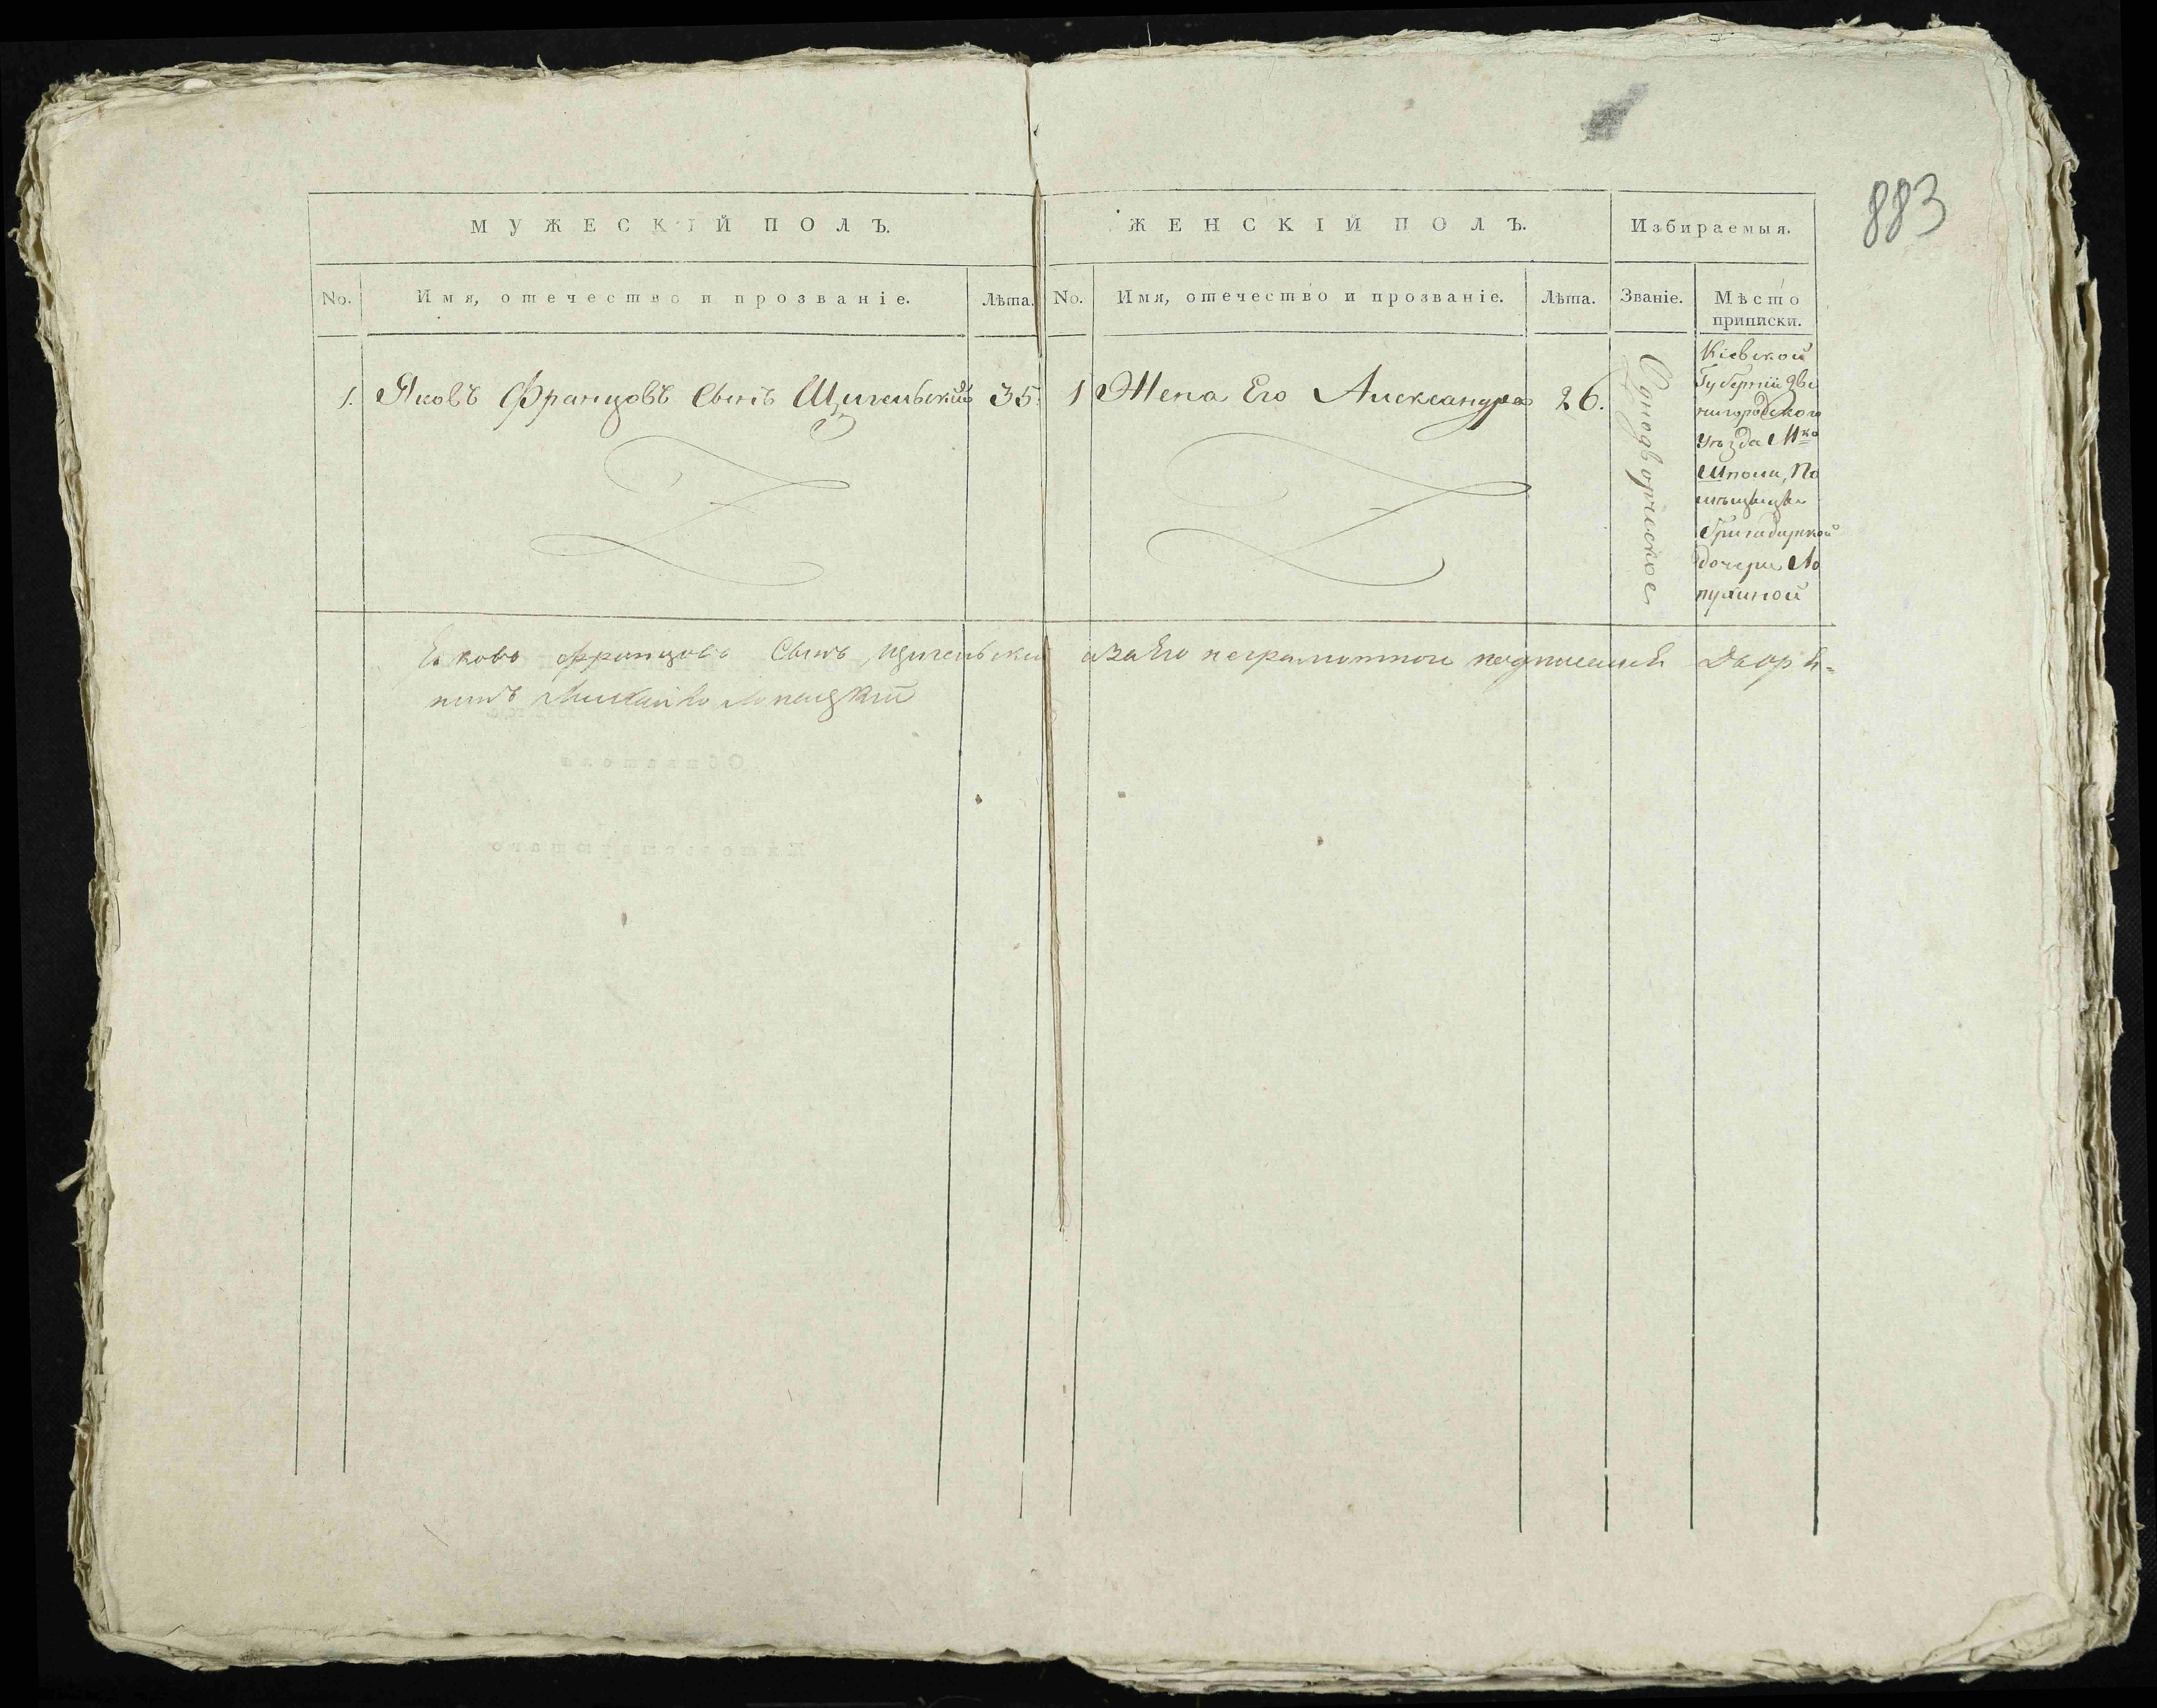 883
МУЖЕСКІЙ ПОЛЪ.
ЖЕНСКІЙ ПОЛЪ.
Избираемыя.
No.
Имя, отечество и прозваніе.
Лѣта.
No.
Имя, отечество и прозваніе.
Лѣта.
Званіе.
Мѣсто
приписки.
1. Яковъ Францовъ Сынъ Щигельскій 35.
1 Жена Его Александра 26.
Однодворческое
Кіевской
Губерніи Зве
нигородского
уѣзда Мко
Шполи, По
мѣщицы
Бригадирской
дочери Ло
пухиной
Яковъ францовъ Сынъ щигельский азаЕго неграмотного подписался Дворя=
нинъ